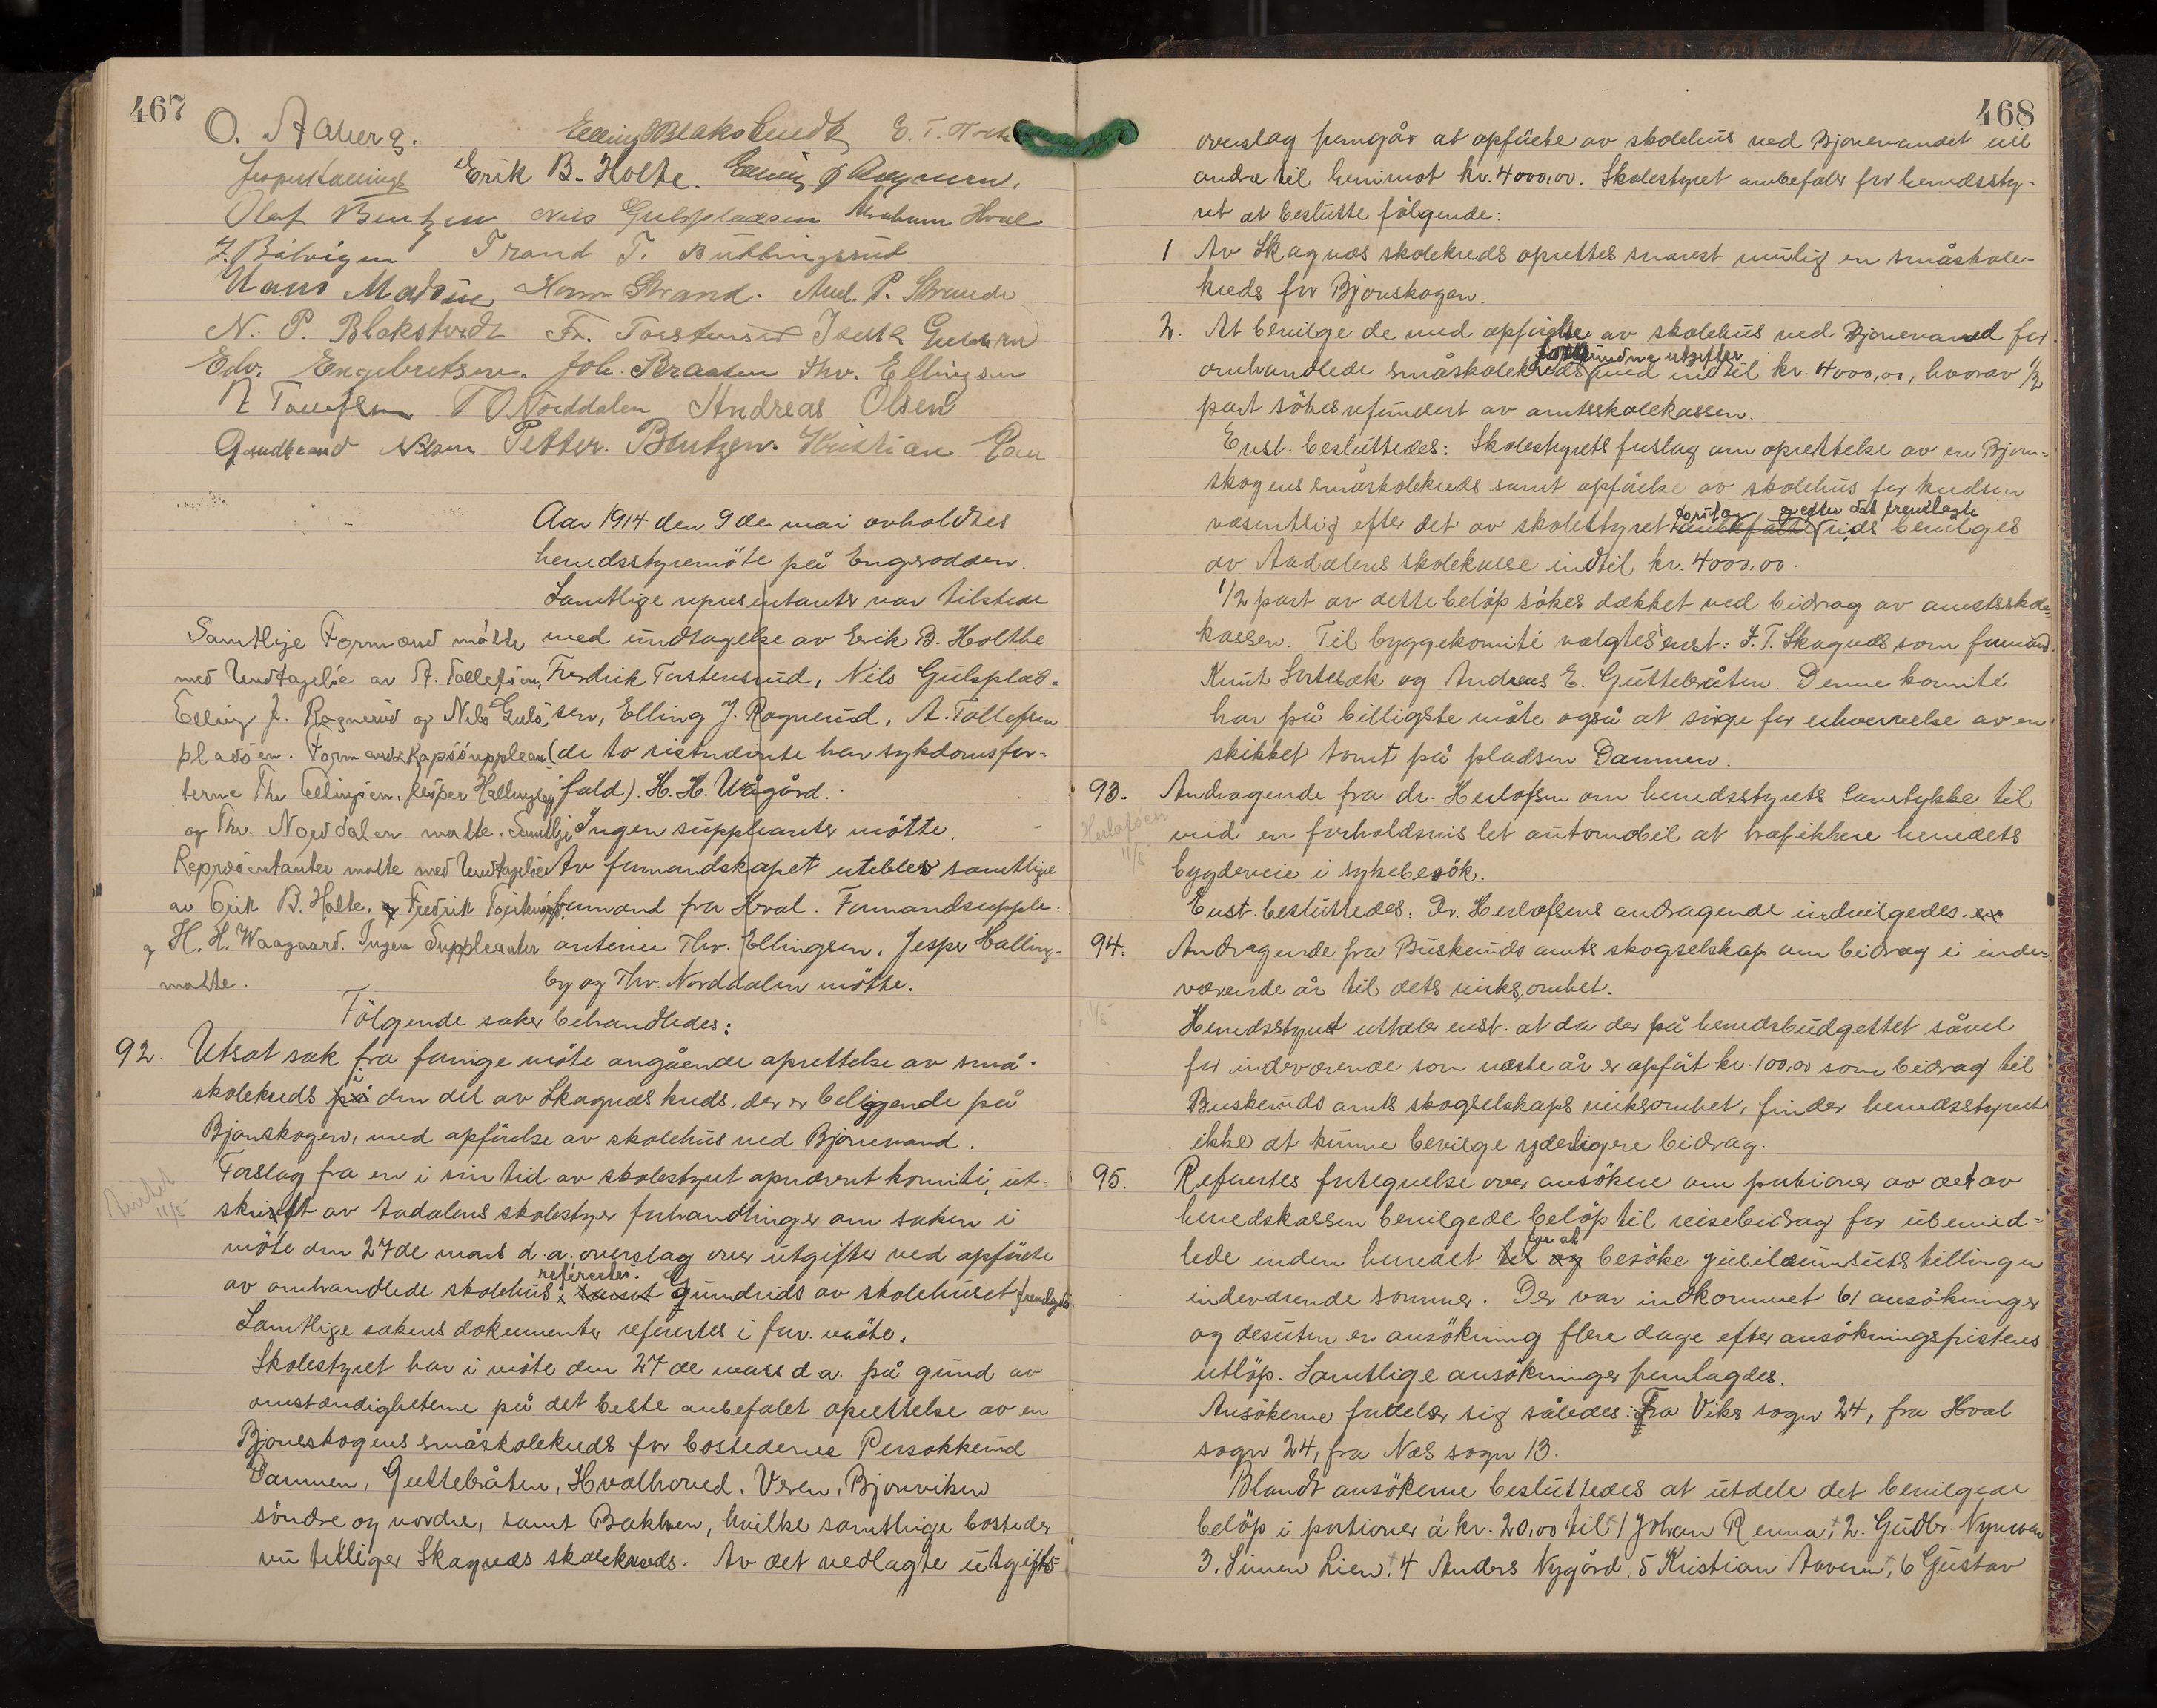 467
O. Aaberg. Elling Blakstvedt E. T.
Jesper Hallingby Erik B. Holte. Elling J Ragnerud.
Olaf Bentzen Nils Gulspladsen Abraham Hval
J. Båtvigen Trand T. Buttingsrud
Hans Madsen Strand. Aml. P. Strande
N. P. Blakstvedt Fr. Torstensrud
Edv. Engebretsen. Joh. Braaten Thv. Ellingsen
A Tollefsen T O Norddalen Andreas Olsen
Gundbrand Nilsen Petter. Bentzen. Kristian
Aar 1914 den 9de mai avholdtes
herredsstyremöte på Engerodden.
Samtlige representanter var tilstede
med undtagelse av Erik B. Holthe
Fredrik Torstensrud, Nils Gulsplad-
sen, Elling J. Ragnerud, A. Tollefsen
(de to sistnevnte har sykdomsfor-
fald). H. H. Wågård.
Ingen suppleanter mötte.
Av formandskapet utebler samtlige
formænd fra Hval. Formandsupple-
anterne Thv. Ellingsen, Jesper Halling-
by og Thv. Norddalen mötte.
Samtlije Formænd mötte
med Undtagelse av A. Tollefsen,
Elling J. Ragnerud og Nils Guls
pladsen. Formandskapssupplean
terne Thv Ellingsen, Jesper Hallingby
og Thv. Norddalen møtte. Samtlije
Repræsentanter møtte med Undtagelse
av Erik B. Holte, og Fredrik Torstensrud
og H. H. Waagaard. Ingen Suppleanter
møtte.
Fölgende saker behandledes:
92. Utsat sak fra forrige möte angående oprettelse av små-
skolekreds på i den del av Skagnæs kreds, der er beliggende på
Bjoneskogen, med opförelse av skolehus ved Bjonevand.
Forslag fra en i sin tid av skolestyret opnævnt komité, ut-
skrift av Aadalens skolestyres forhandlinger om saken i
11/5
möte den 27de mars d.a. overslag over utgifter ved opförelse
av omhandlede skolehus referertes. samt Grundrids av skolehuset fremlagdes.
Samtlige sakens dokumenter refertes i forr. möte.
Skolestyret har i möte den 27de mars d a. på grund av
omstændigheterne på det beste anbefalet oprettelse av en
Bjoneskogens småskolekreds for bostederne Persokkerud
Dammen, Guttebråten, Hvalhoved. Veren, Bjonviken
söndre og nordre, samt Bakken, hvilke samtlige bosteder
nu tilliger Skagnæs skolekreds. Av det vedlagte utgifts-
468
overslag fremgår at opförelse av skolehus ved Bjonevandet vil
andra til henimot kr. 4000,00. Skolestyret anbefaler for herredssty-
ret at beslutte fölgende:
1 Av Skagnæs skolekreds oprettes snarest mulig en småskole-
kreds for Bjoneskogen.
2. At bevilge de med opförelse av skolehus ved Bjonevand for
omhandlede småskolekreds forbundne utgifter med indtil kr. 4000,00, hvorav 1/2
part sökes refundert av amtsskolekassen.
Enst. besluttedes: Skolestyrets forslag om oprettelse av en Bjone-
skogens småskolekreds samt opförelse av skolehus for kredsen
væsentlig efter det av skolestyret anbefalte forslag og efter det fremlagte rids bevilges
av Aadalens skolekasse indtil kr. 4000.00.
1/2 part av dette belöp sökes dækket ved bidrag av amtsskole-
kassen. Til byggekomité valgtes enst: J. T. Skagnæs som formand,
Knut Sortebæk og Andreas E. Guttebråten. Denne komité
har på billigste måte også at sörge for erhvervelse av en
skikket tomt på pladsen Dammen.
93. Andragende fra dr. Herlofsen om herredsstyrets samtykke til
Herlofsen
11/5
med en forholdsvis let automobil at trafikkere herredets
bygdeveie i sykebesök.
Enst. besluttedes: Dr. Herlofsens andragende indvilgedes.
94. Andragende fra Buskeruds amts skogselskap om bidrag i inde-
værende år til dets virksomhet.
Herredsstyret uttaler enst. at da der på herredsbudgettet såvel
for indeværende som næste år er opfört kr. 100,00 som bidrag til
Buskeruds amts skogselskaps virksomhet, finder herredsstyret
ikke at kunne bevilge yderligere bidrag.
95. Refertes fortegnelse over ansökere om portioner av det av
herredskassen bevilgede belöp til reisebidrag for ubemid-
lede inden herredet til og for at besöke jubilæumsutstillingen
indeværende sommer. Der var indkommet 61 ansökninger
og desuten en ansökning flere dage efter ansökningsfristens
utlöp. Samtlige ansökninger fremlagdes.
Ansökerne fordeler sig således: Fra Viker sogn 24, fra Hval
sogn 24, fra Næs sogn 13.
Blandt ansökerne besluttedes at utdele det bevilgede
belöp i portioner á kr. 20,00 til 1 Johan Renna, 2. Gudbr. Nymoen
3. Simen Lien, 4 Anders Nygård, 5 Kristian Aaveren, 6 Gustav